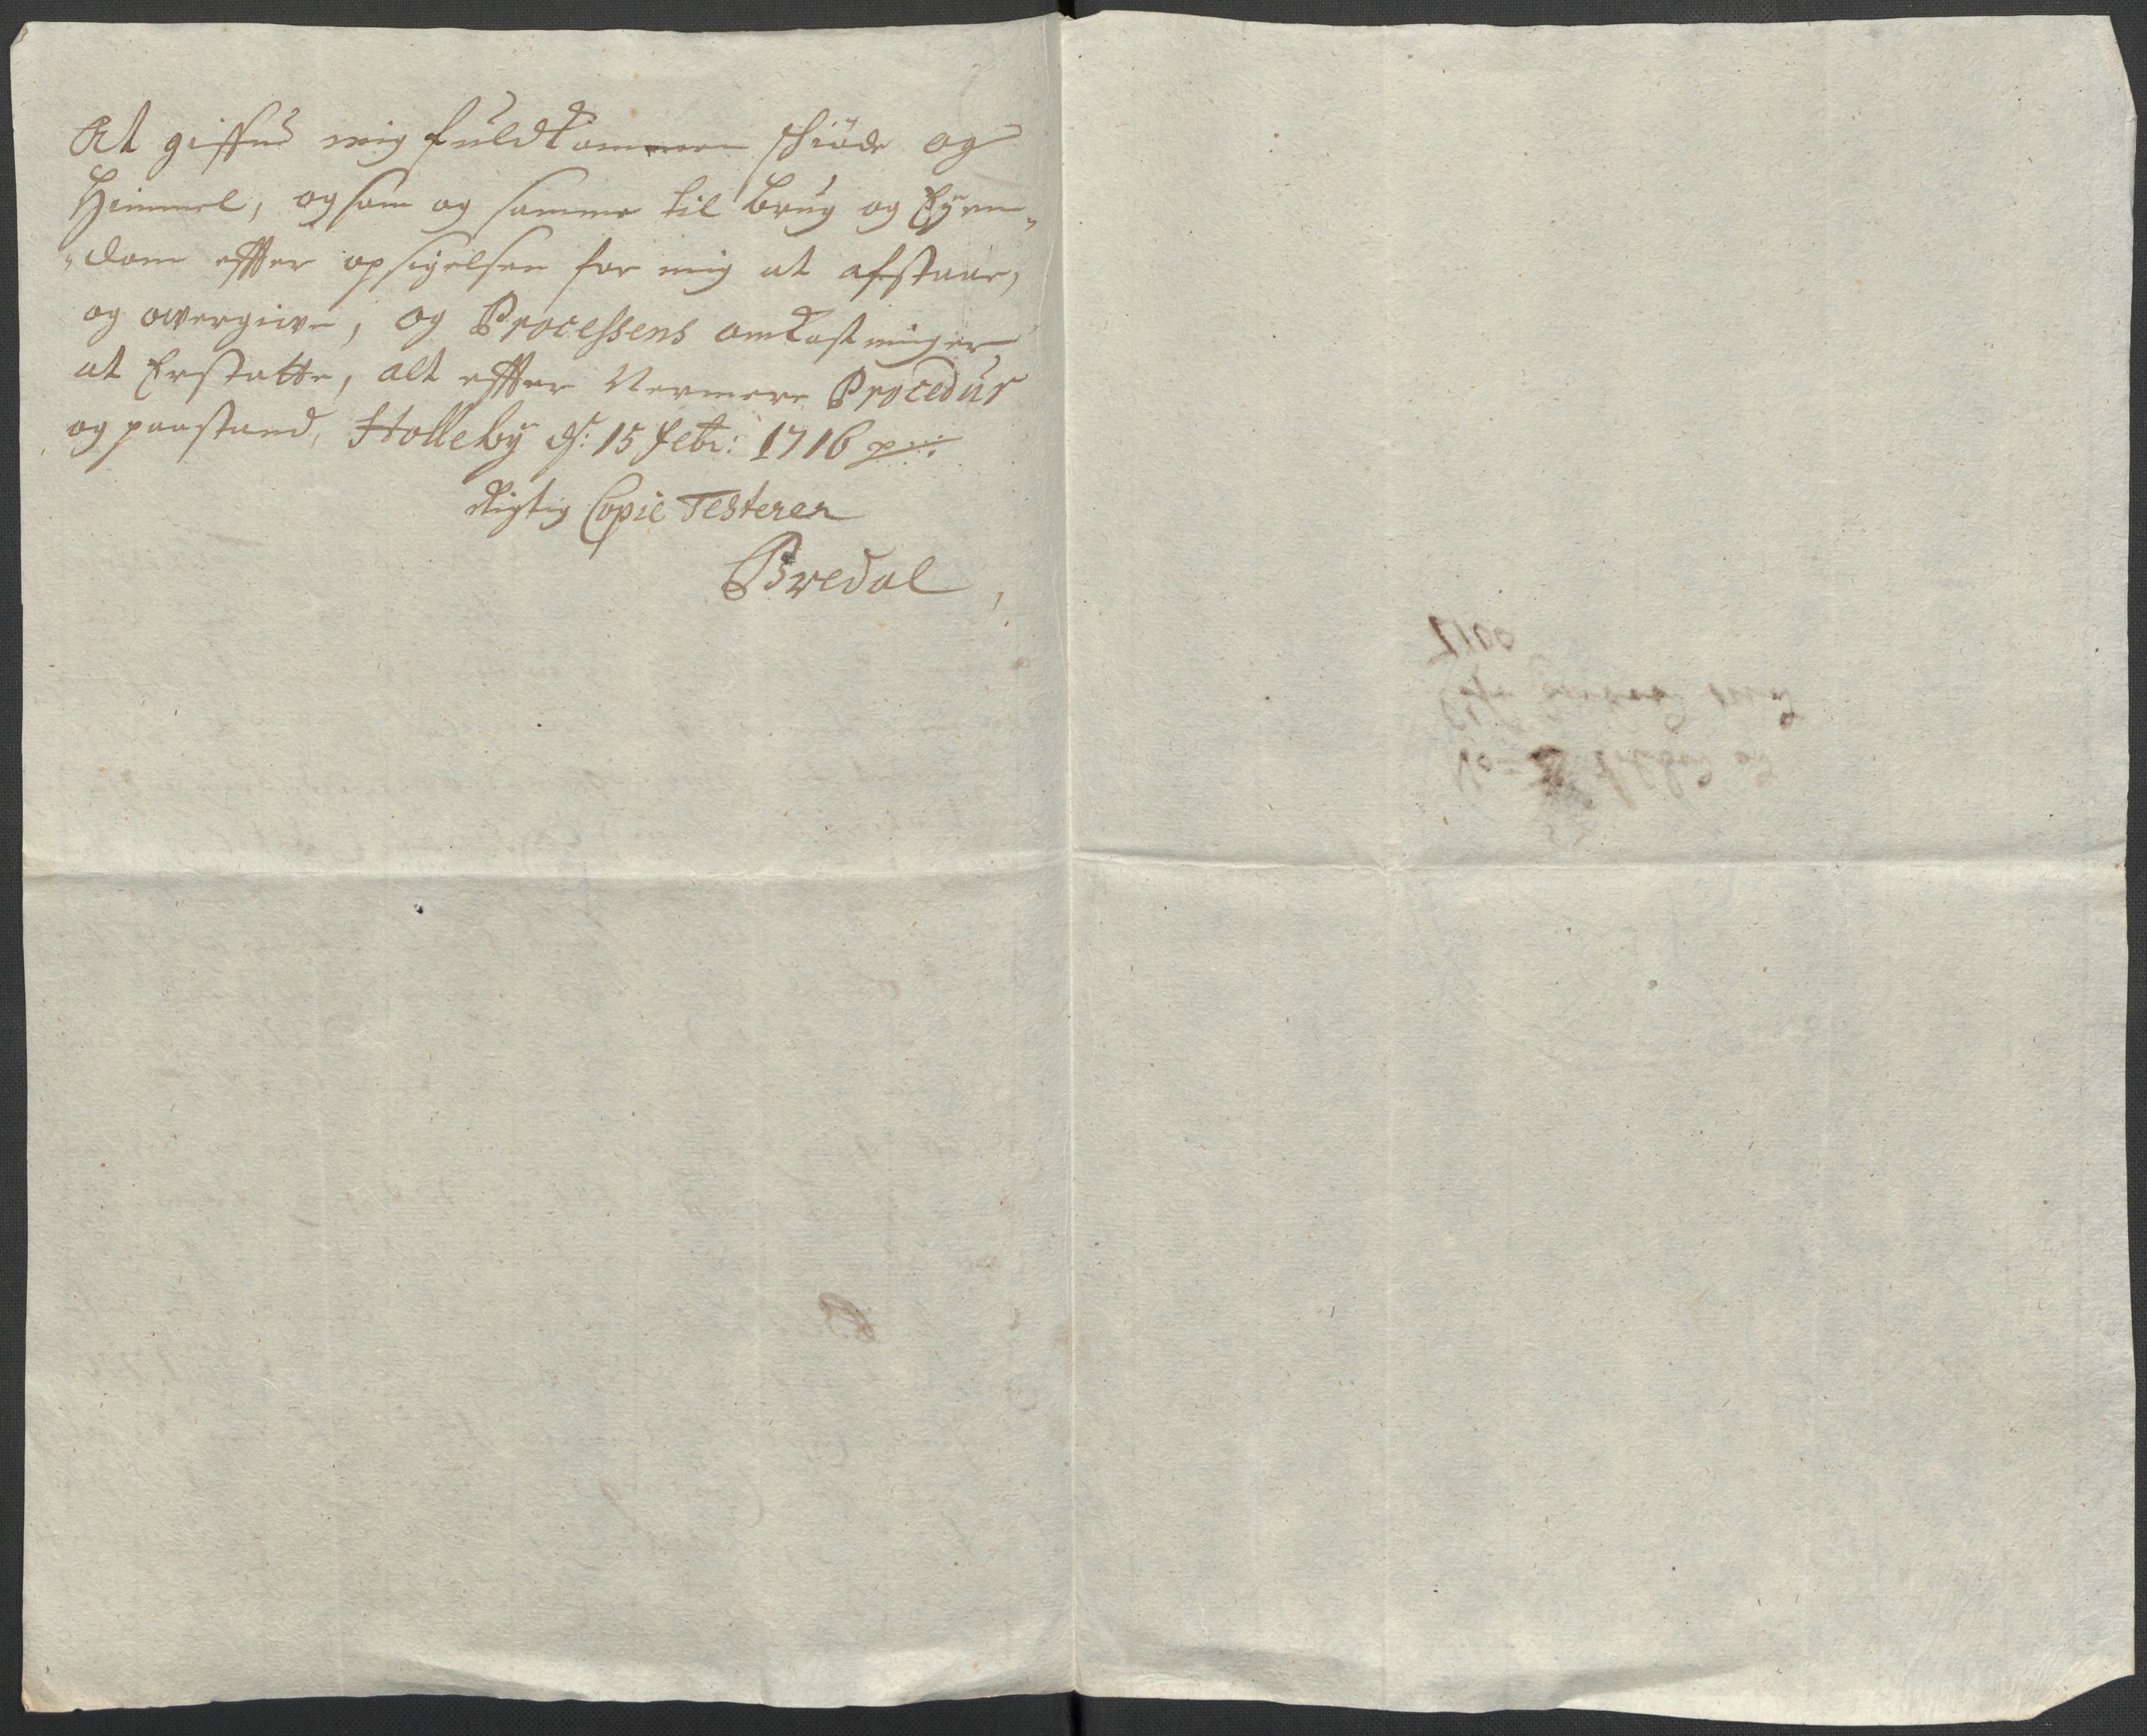 At giffue mig fuldkommen schiöde og
Himmel, og som og samme til brug og Eyen„
„dom effter opsigelsen for mig at afstaar,
og overgive, og Processens omkostninger
at Erstatte, alt effter Nermere Procedur
og paastand, Holleby d: 15 Febr: 1716
Rigtig Copie Testerer
Bredal